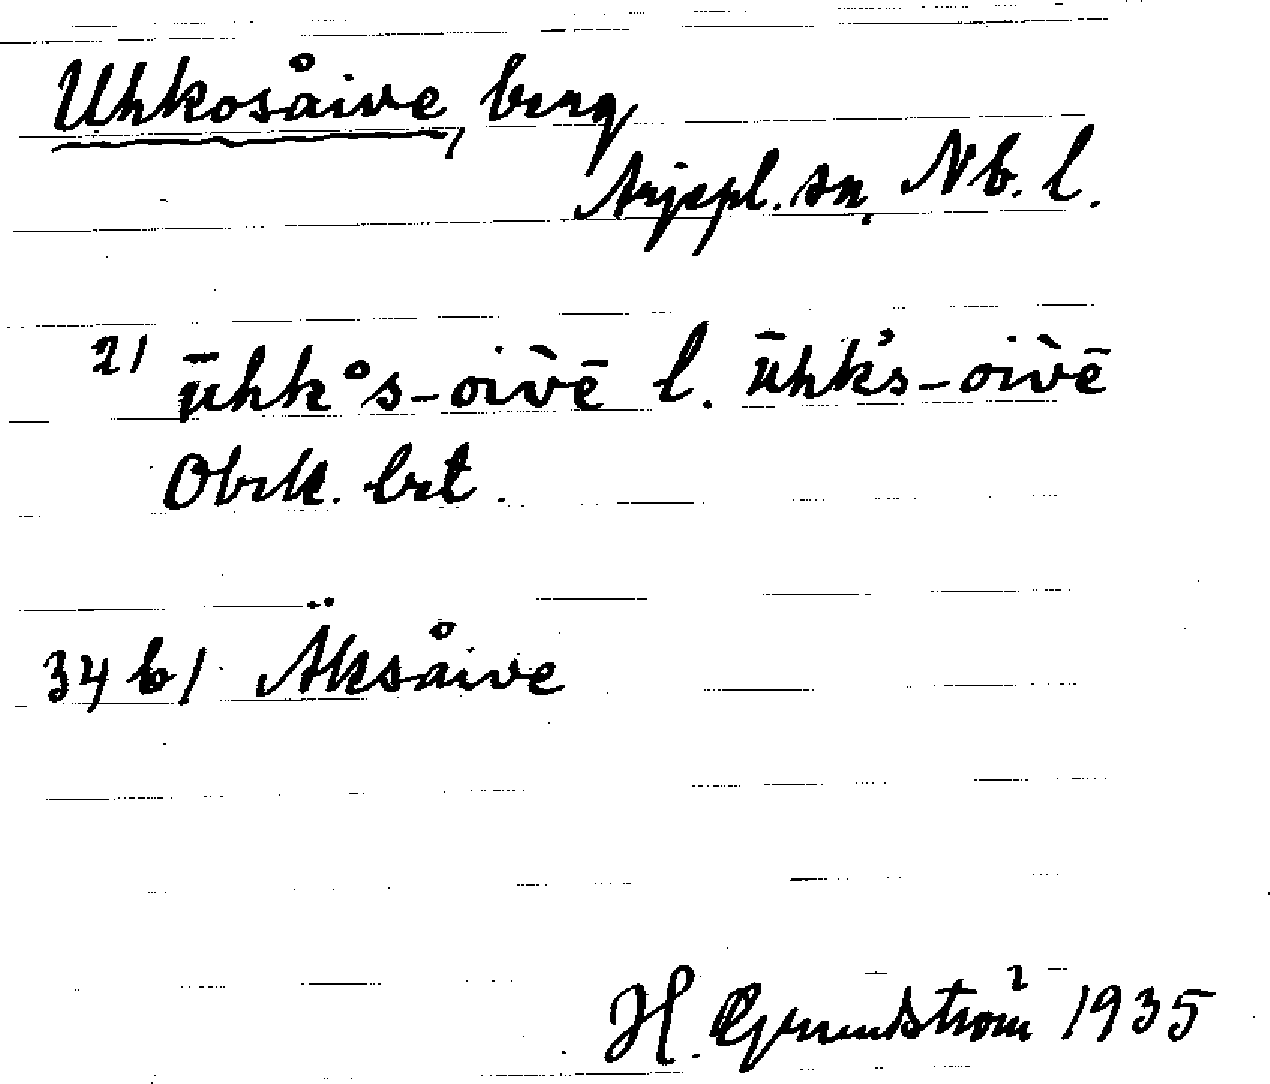 Uhkosåive, berg
Arjepl. sn, Nb. l.
2/ ūhk°s-oìvē l. ūhk's-oìvē
Obek. bet.
34 b/ Äksåive
H. Grundström 1935